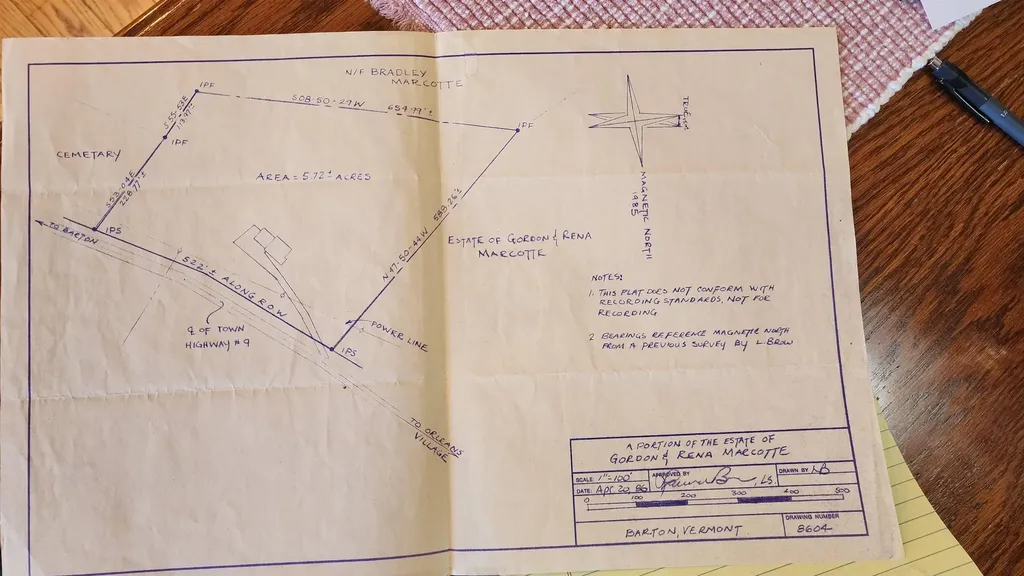 N/F BRADLEY
MARCOTTE
IPF
S08-50-27W 654.77'±
IPF
S55-53E
113.97'±
IPF
CEMETARY
S53-04E
228.77'±
AREA = 5.72± ACRES
IPS
TO BARTON
522'± ALONG R.O.W
N47-50-44W 589.26'±
ESTATE OF GORDON & RENA
MARCOTTE
℄ OF TOWN
HIGHWAY #9
POWER LINE
IPS
TO ORLEANS
VILLAGE
MAGNETIC NORTH
1985
NOTES:
1. THIS PLAT DOES NOT CONFORM WITH
RECORDING STANDARDS, NOT FOR
RECORDING
2 BEARINGS REFERENCE MAGNETIC NORTH
FROM A PREVIOUS SURVEY BY L. BROW
A PORTION OF THE ESTATE OF
GORDON & RENA MARCOTTE
SCALE: 1"=100'
APPROVED BY
LS
DRAWN BY
DATE: Apr 20, 86
0 100 200 300 400 500
BARTON, VERMONT
DRAWING NUMBER
8604